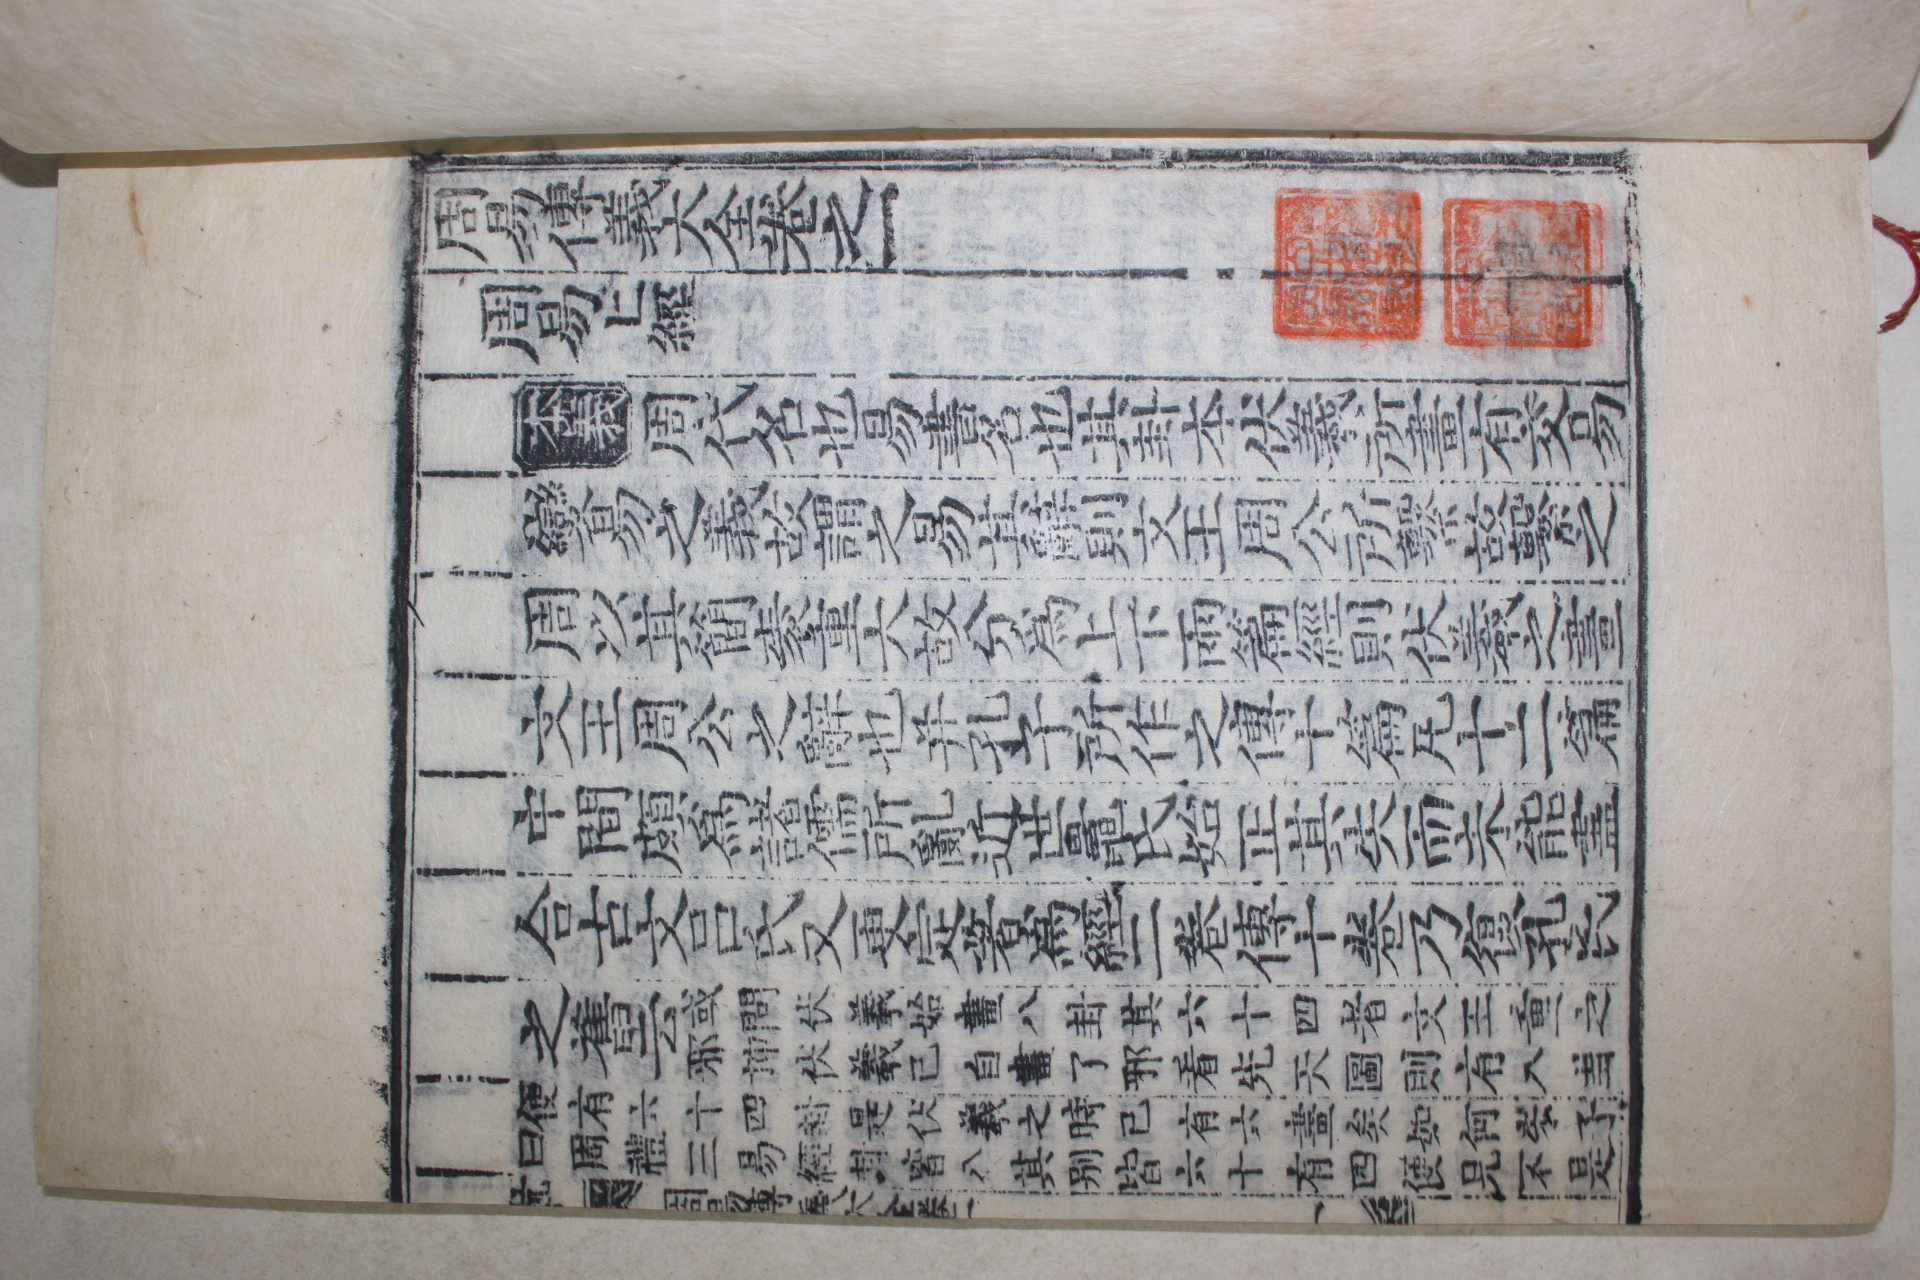 周易傳義大全卷之一
周易上經
本義 周代名也易書名也其卦本伏羲所畫有交易
變易之義故謂之易其辭則文王周公所繫故繫之
周以其簡袠重大故分爲上下兩篇經則伏羲之畫
文王周公之辭也并孔子所作之傳十篇凡十二篇
中間頗爲諸儒所亂近世鼂氏始正其失而未能盡
合古文呂氏又更定著爲經二卷傳十卷乃復孔氏
之舊云
或問伏羲始畫八卦其六十四者文王重之
邪抑伏羲已自畫了邪看先天圖則有八卦
便有六十四卦是伏羲之時已有六畫矣如何㞦子
曰周禮三易經卦皆八其別皆六十有四便見不是
周易傳義大全卷一